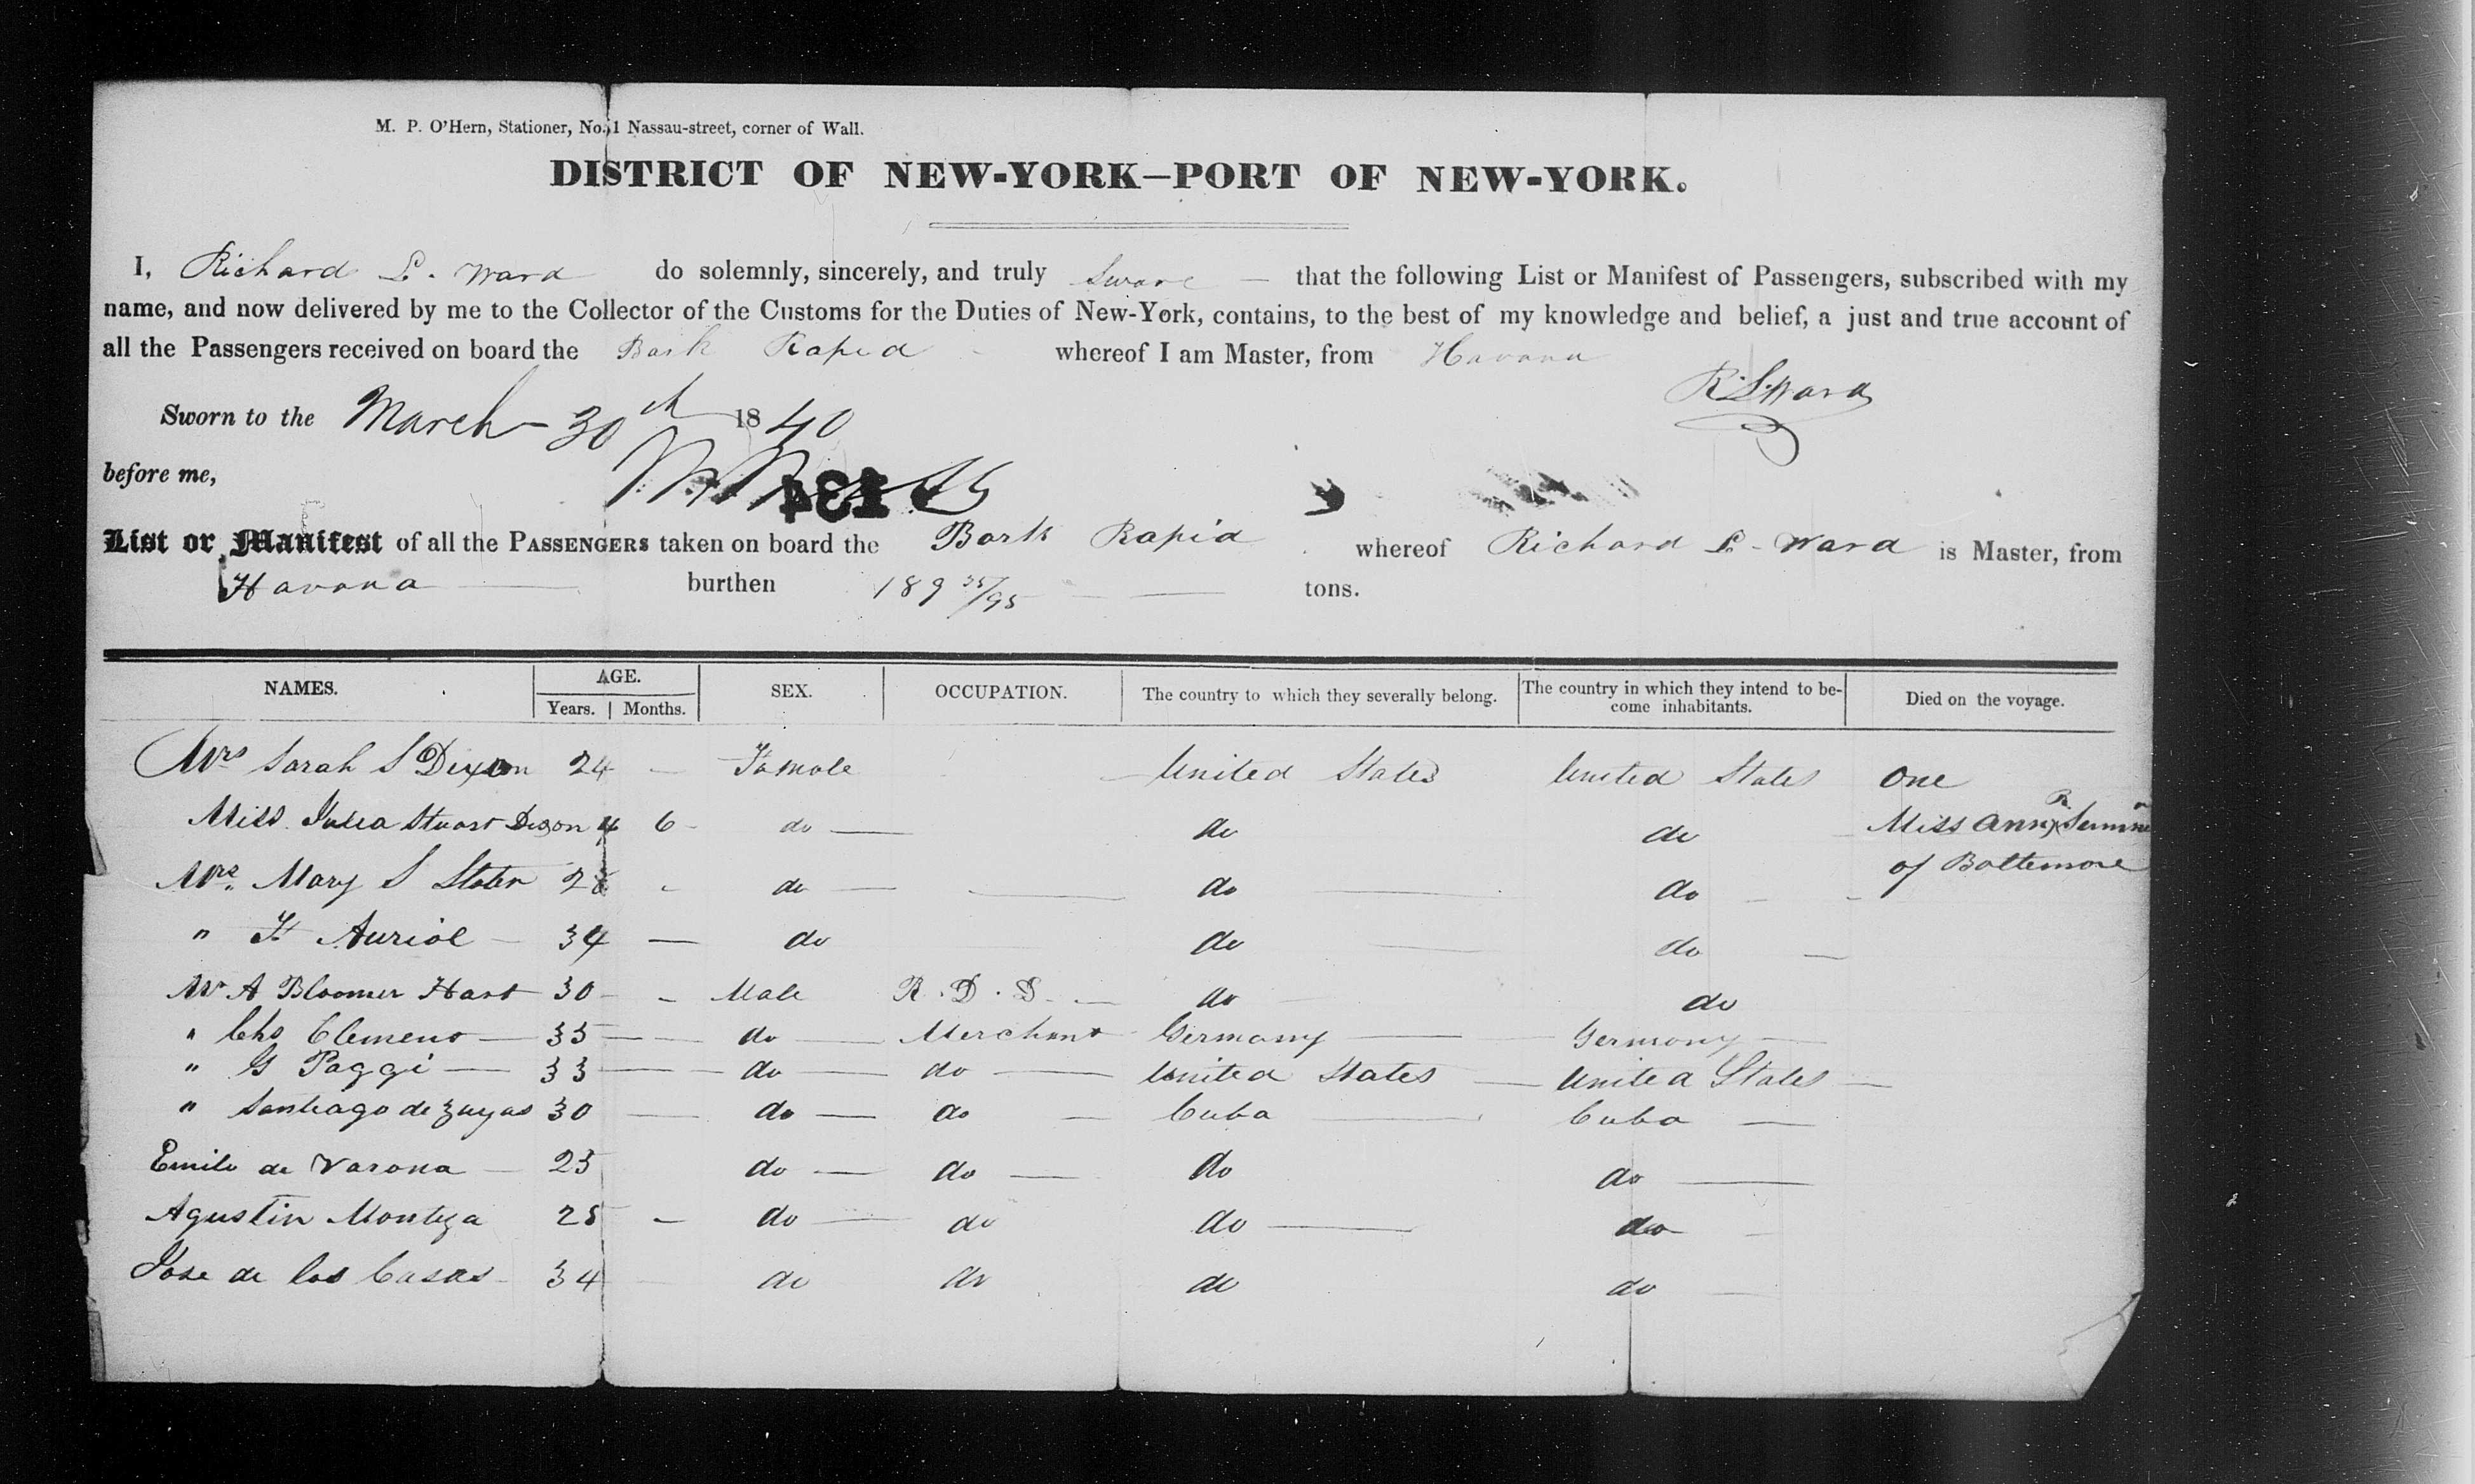 M. P. O'Hern, Stationer, No. 1 Nassau-street, corner of Wall.
DISTRICT OF NEW-YORK—PORT OF NEW-YORK.
I, Richard L. Ward do solemnly, sincerely, and truly Sware — that the following List or Manifest of Passengers, subscribed with my
name, and now delivered by me to the Collector of the Customs for the Duties of New-York, contains, to the best of my knowledge and belief, a just and true account of
all the Passengers received on board the Bark Rapid whereof I am Master, from Havana
R. L. Ward
Sworn to the March 30th 1840
before me,
134
List or Manifest of all the PASSENGERS taken on board the Bark Rapid whereof Richard L. Ward is Master, from
Havana burthen 189 35/95 tons.
NAMES. AGE. SEX. OCCUPATION. The country to which they severally belong. The country in which they intend to be- Died on the voyage.
Years. Months. come inhabitants.
Mrs Sarah S Dixon 24 — Female United States United States One
Miss Julia Stuart Dixon 4 6 do do do Miss Ann R
of Baltimore
Mrs. Mary S Slater 28 - do — do do
" F Auriol — 34 — do do do
Mr A Bloomer Hart 30 - Male R. D. S. do do
" Chs Clemens — 35 — do — Merchant Germany — Germany —
" G Paggi — 33 — do — do — United States — United States —
" Santiago de Zayas 30 — do — do — Cuba — Cuba —
Emilo de Varona — 25 do — do — do do —
Agustin 25 — do — do do — do
Jose de las Casas 34 do do do do